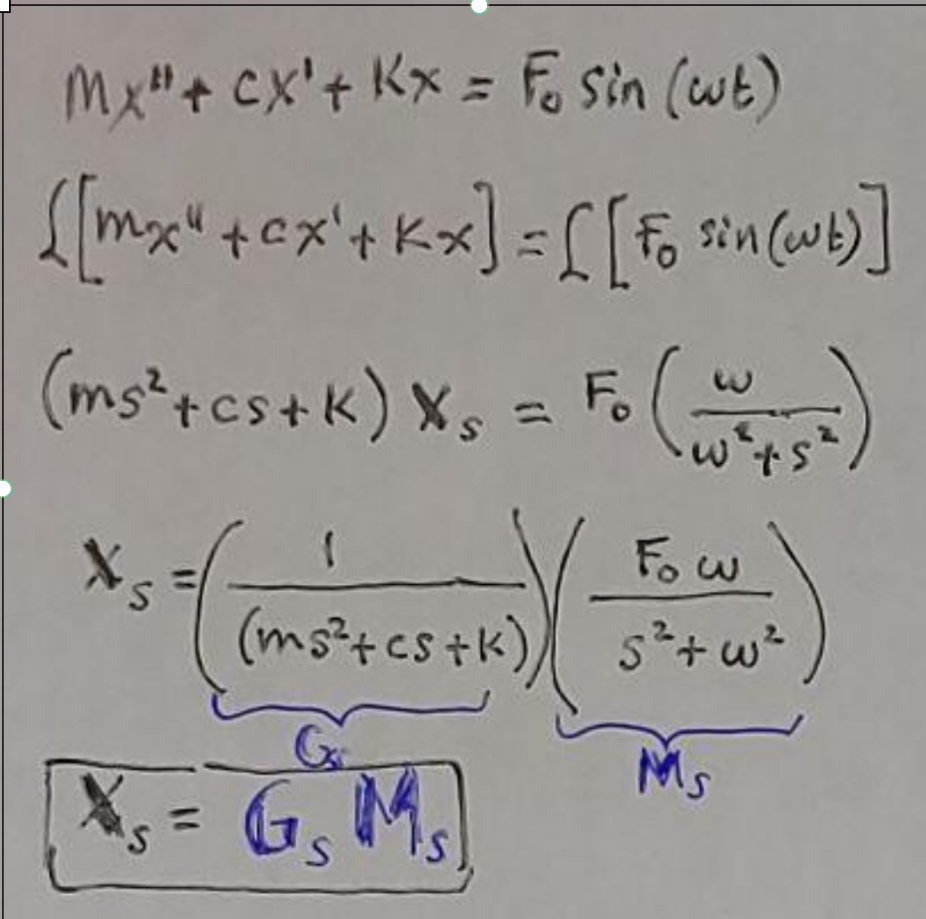 mx" + cx' + Kx = F₀ sin (ωt)
ℒ[mx" + cx' + Kx] = ℒ[F₀ sin(ωt)]
(ms² + cs + K) Xₛ = F₀ (ω / (ω² + s²))
Xₛ = (1 / (ms² + cs + K)) (F₀ ω / (s² + ω²))
Gₛ Mₛ
Xₛ = Gₛ Mₛ